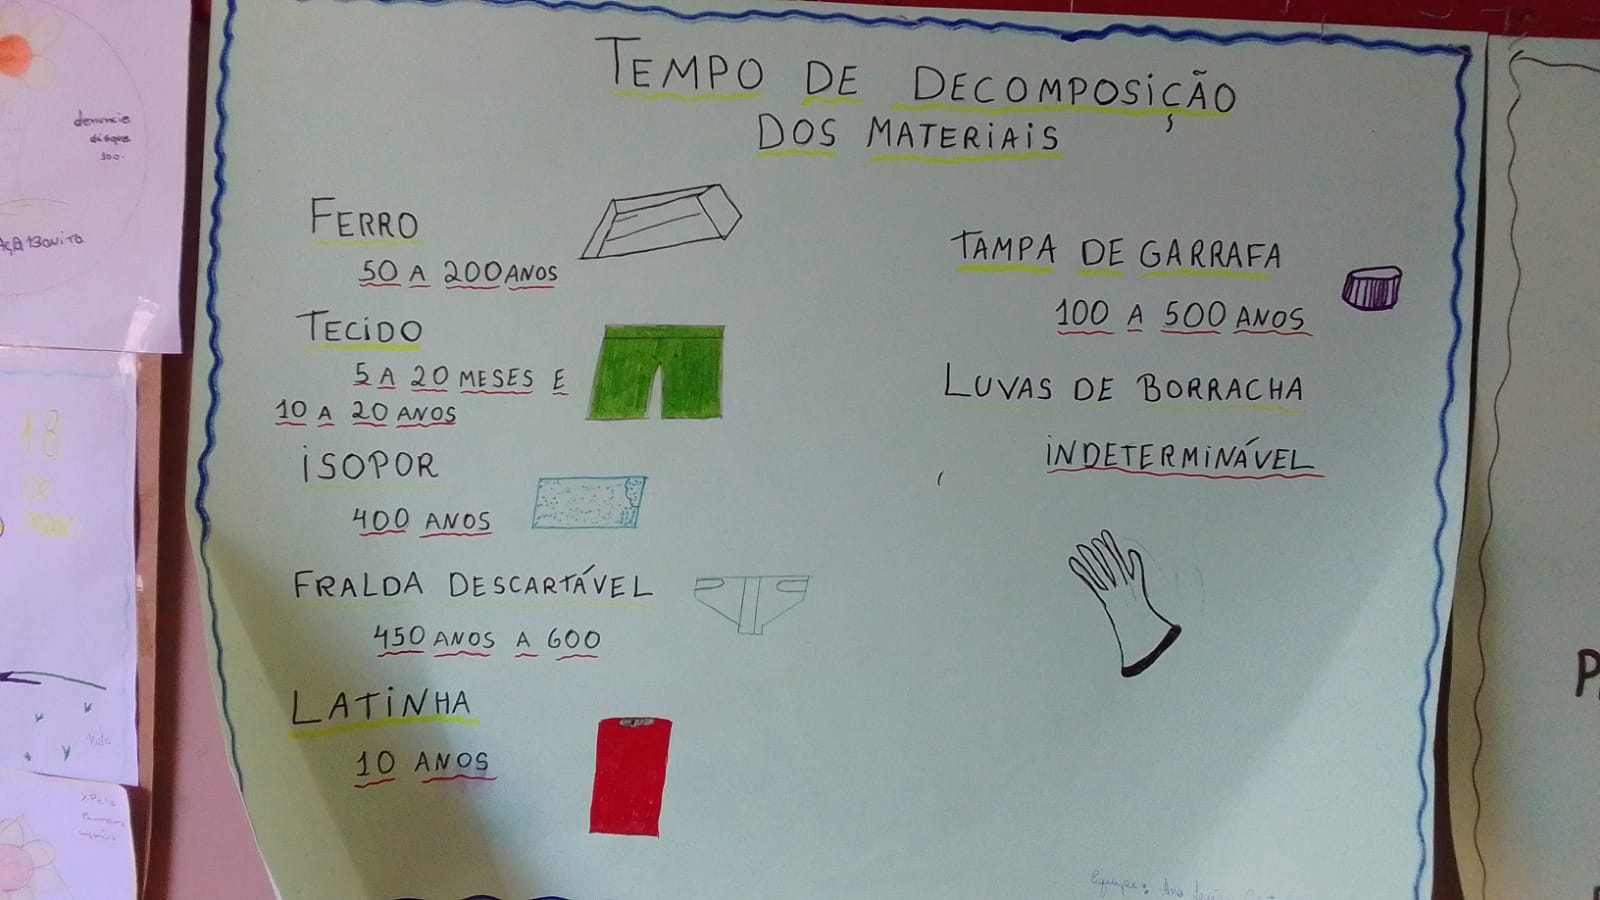 TEMPO DE DECOMPOSIÇÃO
DOS MATERIAIS
FERRO
50 A 200 ANOS
TECIDO
5 A 20 MESES E
10 A 20 ANOS
ISOPOR
400 ANOS
FRALDA DESCARTÁVEL
450 ANOS A 600
LATINHA
10 ANOS
TAMPA DE GARRAFA
100 A 500 ANOS
LUVAS DE BORRACHA
INDETERMINÁVEL
Equipe: Ana
denuncie
disque
100.
BONITO
18
DE
MAIO